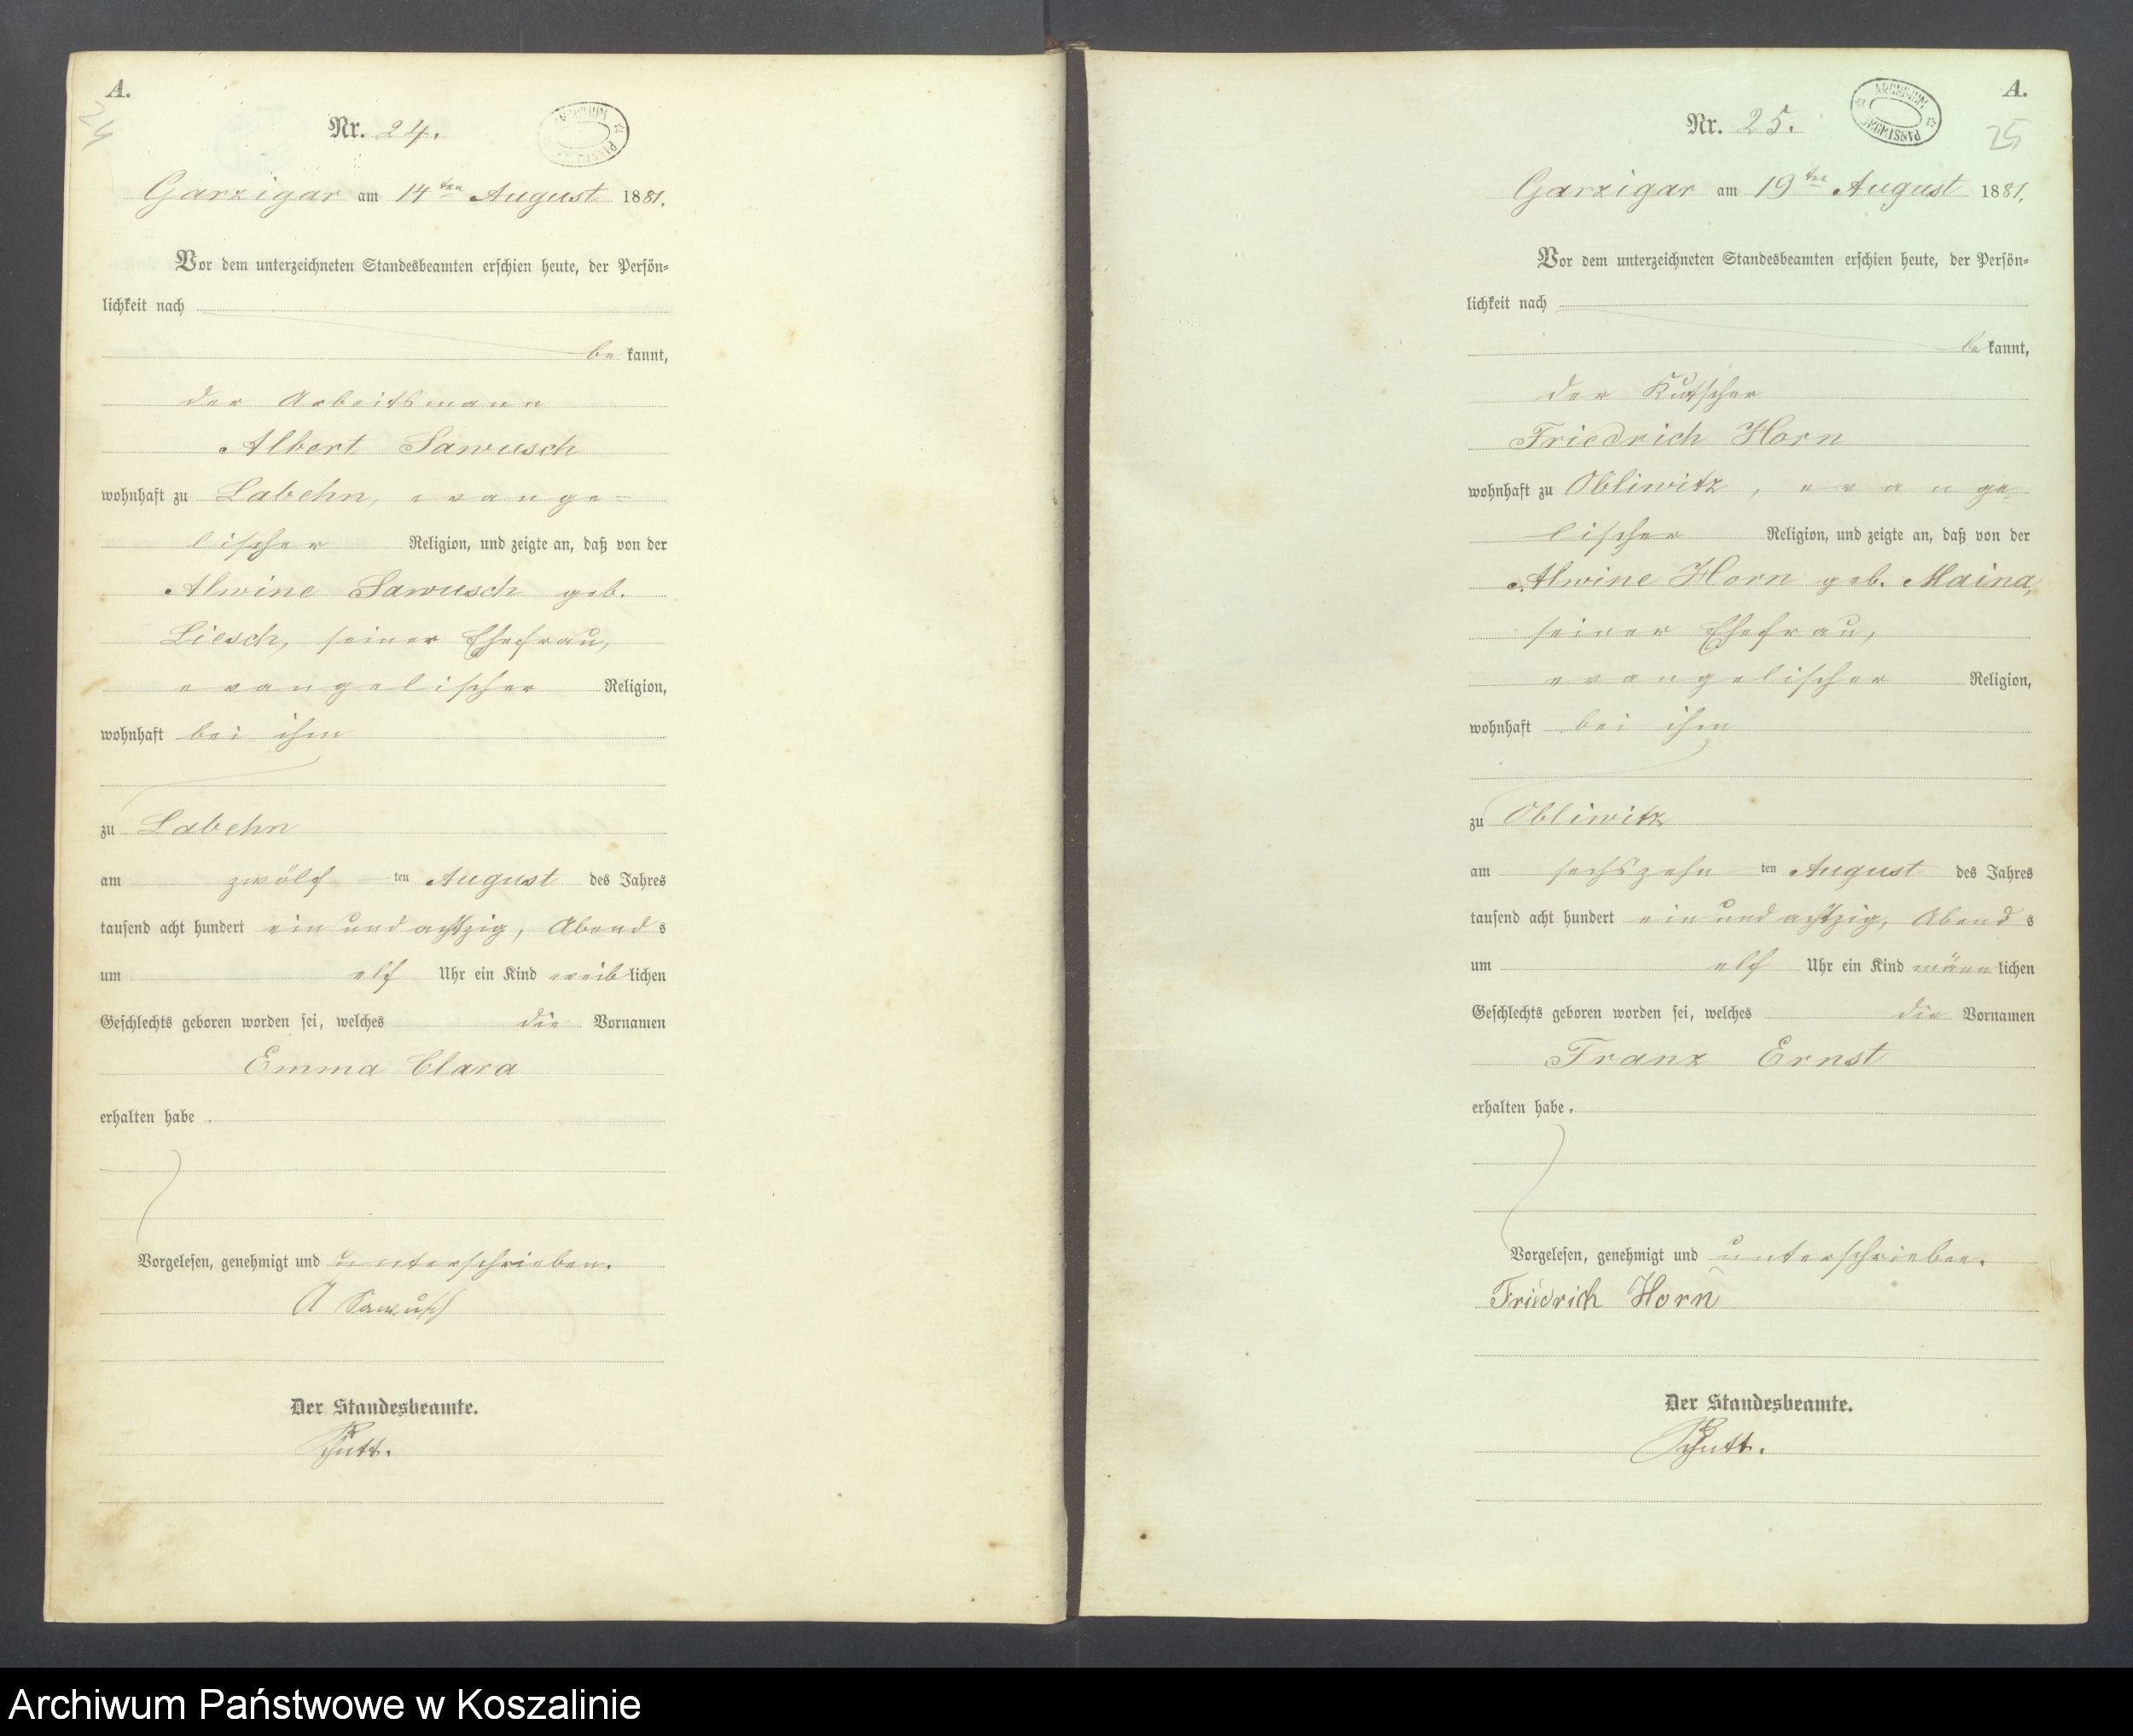 A.
24
Nr. 24.
ARCHIWUM
Garzigar am 14ten August 1881.
Vor dem unterzeichneten Standesbeamten erschien heute, der Persön-
lichkeit nach
bekannt,
der Arbeitsmann
Albert Sawusch
wohnhaft zu Labehn, evange-
lischer Religion, und zeigte an, daß von der
Alwine Sawusch geb.
Liesch, seiner Ehefrau,
evangelischer Religion,
wohnhaft bei ihm
zu Labehn
am zwölften August des Jahres
tausend acht hundert ein und achtzig, Abends
um elf Uhr ein Kind weiblichen
Geschlechts geboren worden sei, welches die Vornamen
Emma Clara
erhalten habe.
Vorgelesen, genehmigt und unterschrieben.
A Sawusch
Der Standesbeamte.
A.
25
Nr. 25.
ARCHIWUM PAŃSTWOWE
Garzigar am 19ten August 1881.
Vor dem unterzeichneten Standesbeamten erschien heute, der Persön-
lichkeit nach
bekannt,
der Kutscher
Friedrich Horn
wohnhaft zu Obliwitz, evange-
lischer Religion, und zeigte an, daß von der
Alwine Horn geb. Maina,
seiner Ehefrau,
evangelischer Religion,
wohnhaft bei ihm
zu Obliwitz
am sechszehnten August des Jahres
tausend acht hundert ein und achtzig, Abends
um elf Uhr ein Kind männlichen
Geschlechts geboren worden sei, welches die Vornamen
Franz Ernst
erhalten habe.
Vorgelesen, genehmigt und unterschrieben.
Friedrich Horn
Der Standesbeamte.
Archiwum Państwowe w Koszalinie